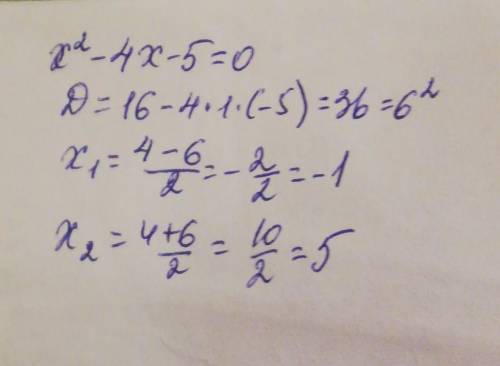 x² - 4x - 5 = 0
D = 16 - 4 · 1 · (-5) = 36 = 6²
x₁ = (4 - 6)/2 = - 2/2 = -1
x₂ = (4 + 6)/2 = 10/2 = 5